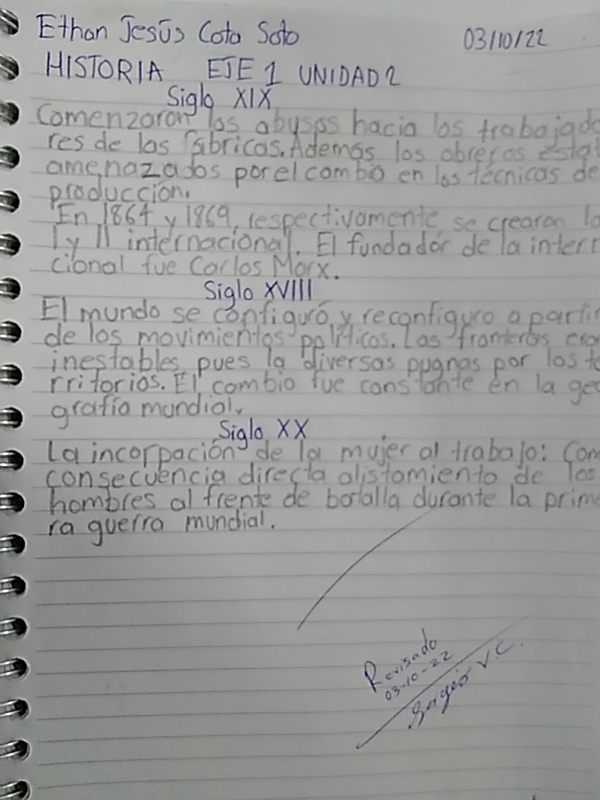 Ethan Jesús Cota Soto 03/10/22
HISTORIA EJE 1 UNIDAD 2
Siglo XIX
Comenzaron los abusos hacia los trabajado
res de las fábricas. Además los obreros estab
amenazados por el cambio en las técnicas de
producción.
En 1864 y 1869, respectivamente se crearon la
I y II internacional. El fundador de la intern
cional fue Carlos Marx.
Siglo XVIII
El mundo se configuró y reconfiguro a partir
de los movimientos políticos. Las fronteras eran
inestables pues la diversas pugnas por los te
rritorios. El cambio fue constante en la geo
grafía mundial.
Siglo XX
La incorpación de la mujer al trabajo: Com
consecuencia directa alistamiento de los
hombres al frente de batalla durante la prime
ra guerra mundial.
Revisado
03-10-22
Sergio V.C.